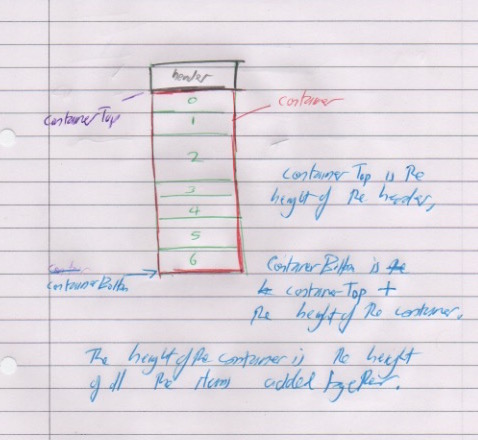 header
0
container
containerTop
1
2
containerTop is the
height of the header,
3
4
5
containerBottom is the
containerBottom
6
containerTop +
the height of the container.
The height of the container is the height
of all the items added together.